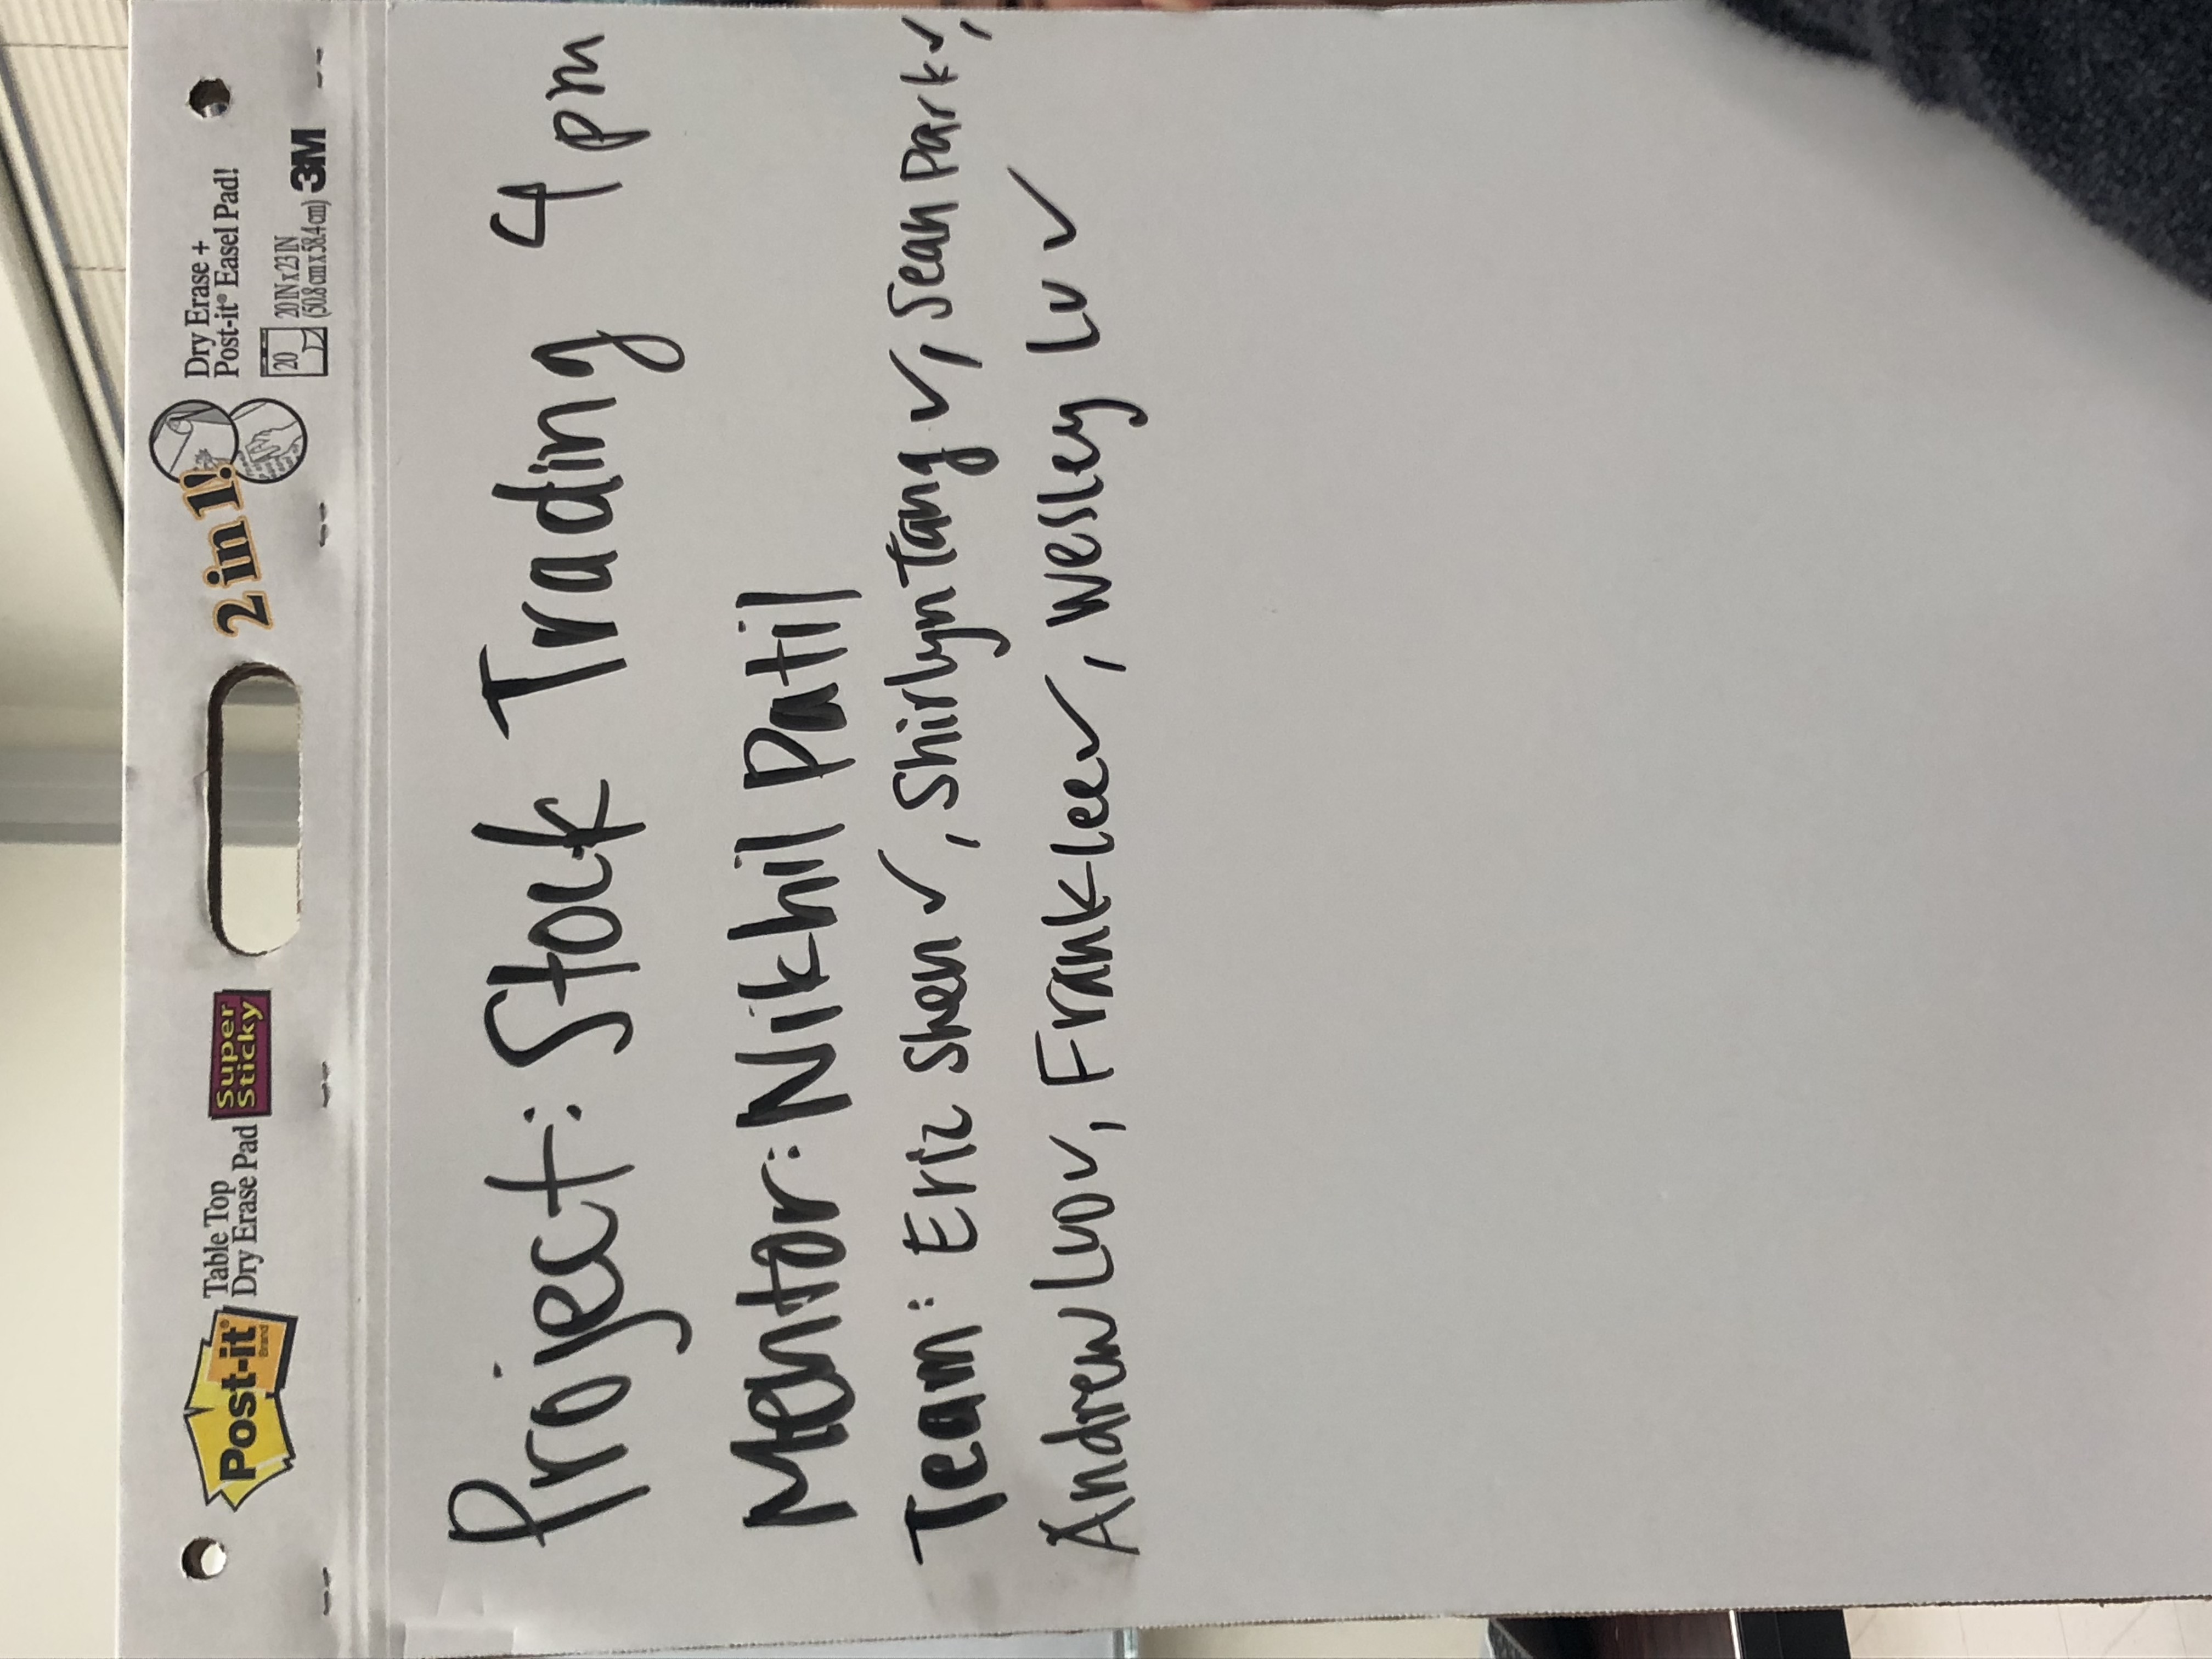 Post-it® Brand
Table Top
Dry Erase Pad
Super
Sticky
2 in 1!
Dry Erase +
Post-it® Easel Pad!
20
20 IN x 23 IN
(50.8 cm x 58.4 cm)
3M
Project: Stock Trading 4 pm
Mentor: Nikhil Patil
Team: Eric Shen ✓, Shirlyn Tang ✓, Sean Park ✓,
Andrew Luo ✓, Frank Lee ✓, Wesley Lu ✓